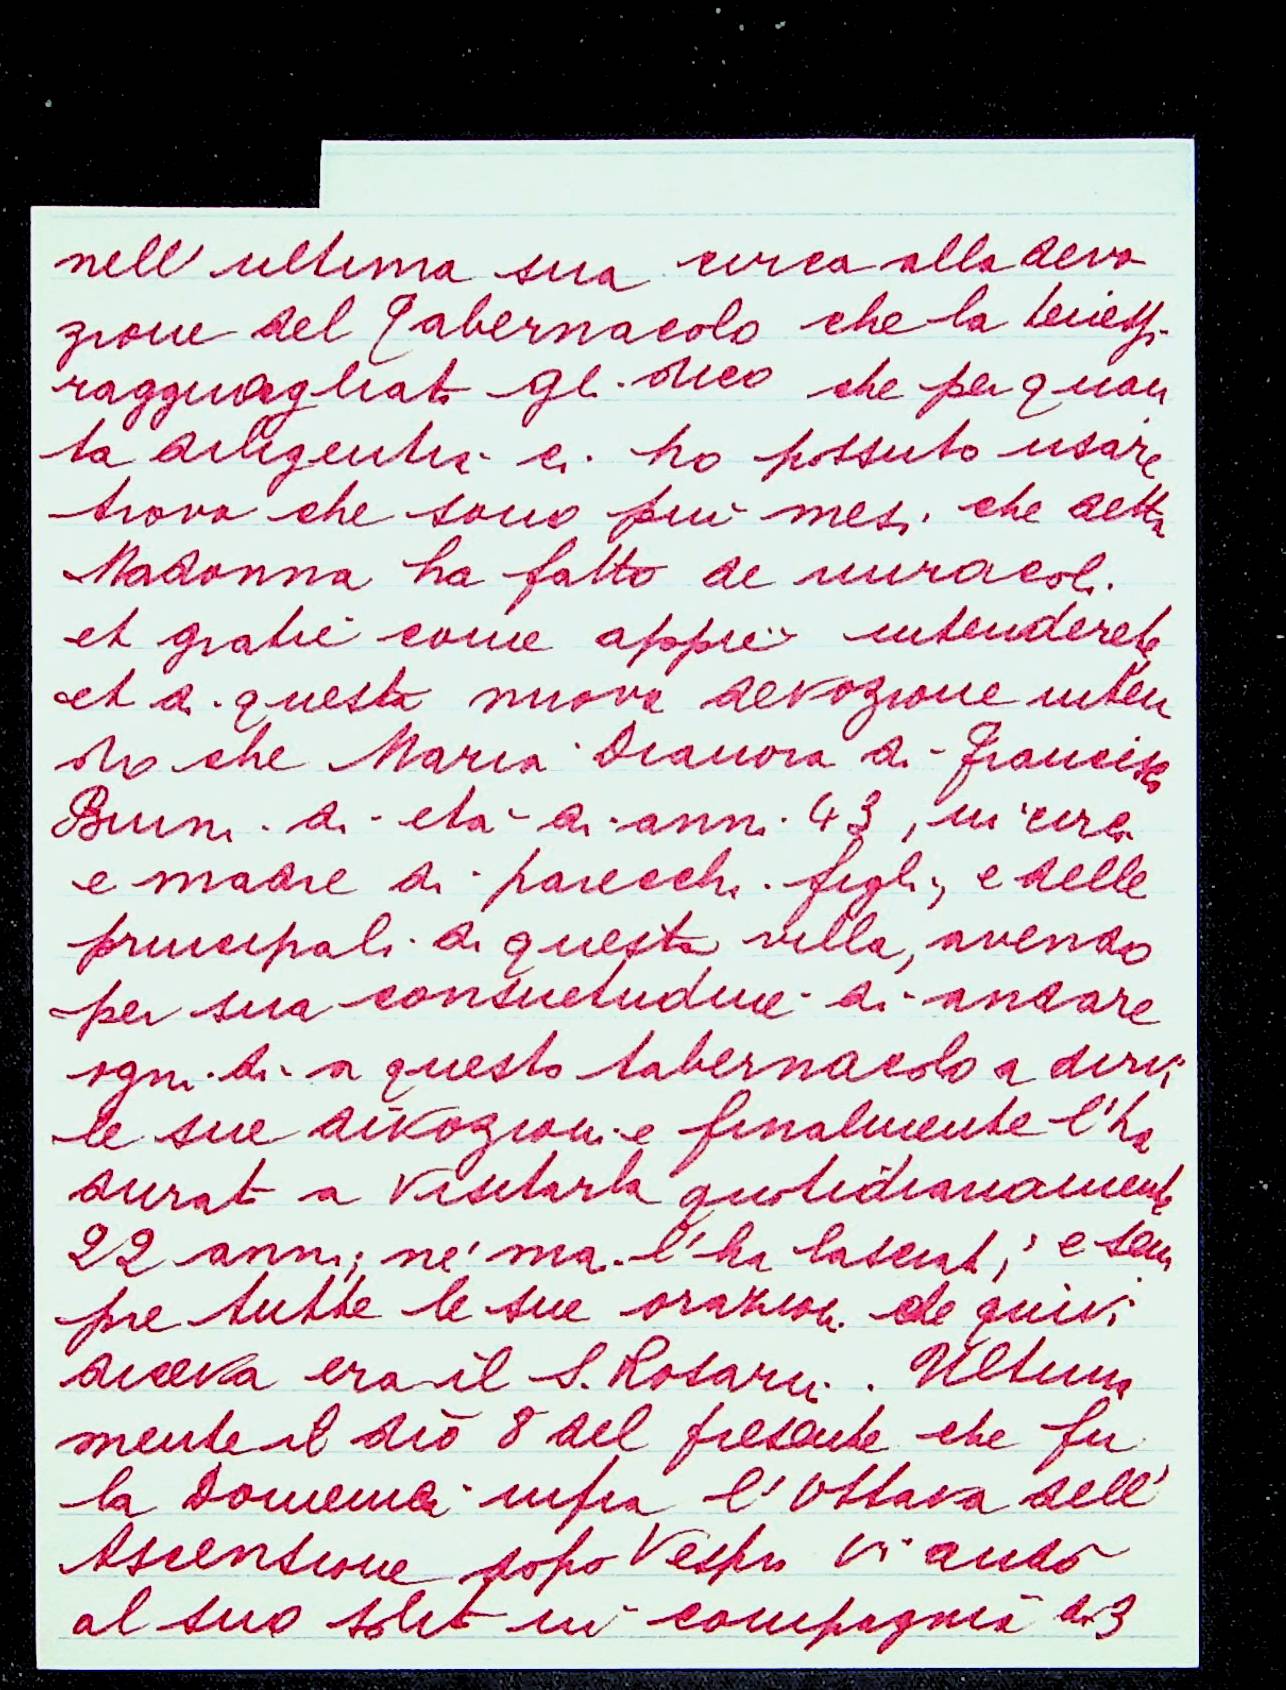 nell'ultima sua circa alla devo
zione del Tabernacolo che la tenessi
ragguagliato gli dico che per quan
ta diligentia ci ho possuto usare
trovo che sono più mesi che detta
Madonna ha fatto de miracoli
et gratie come appiè intenderete
et di questa nuova devozione inten
do che Maria Dianora di Francisco
Burni di età di anni 43, in circa
e madre di parecchi figli, e delle
principali di questa villa, avendo
per sua consuetudine di andare
ogni dì a questo tabernacolo a dirvi
le sue divozioni e finalmente l'ha
durato a visitarla quotidianamente
22 anni; né mai l'ha lasciato; e sem
pre tutte le sue orazioni che quivi
diceva era il S. Rosario. Ultima
mente il dió 8 del presente che fu
la Domenica infra l'Ottava dell'
Ascensione dopo Vespro vi andò
al suo solito in compagnia di 3